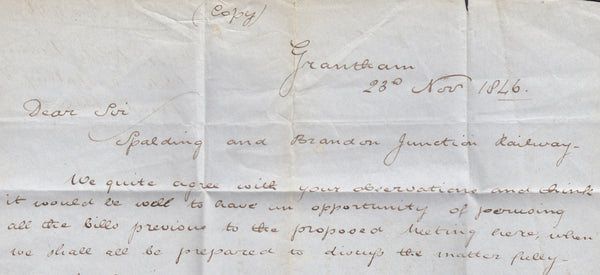 (Copy)
Grantham
23rd Nov 1846.
Dear Sir
Spalding and Brandon Junction Railway-
We quite agree with your observations and think
it would be well to have an opportunity of perusing
all the bills previous to the proposed Meeting here, when
we shall all be prepared to discuss the matter fully-